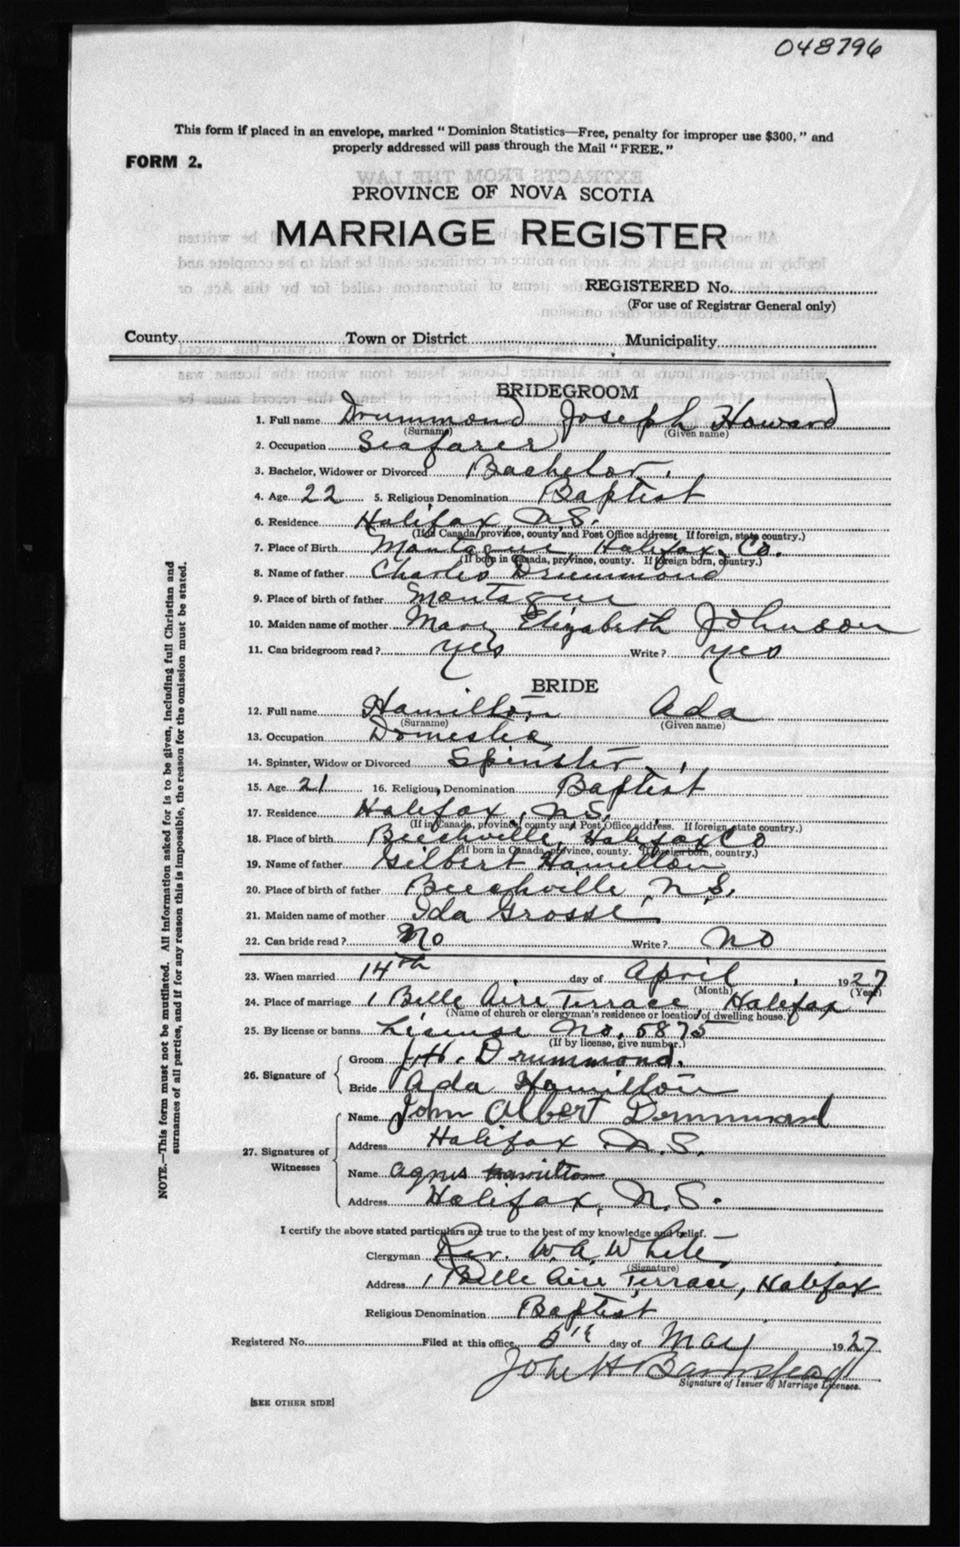 048796
This form if placed in an envelope, marked "Dominion Statistics—Free, penalty for improper use $300," and
properly addressed will pass through the Mail "FREE."
FORM 2.
PROVINCE OF NOVA SCOTIA
MARRIAGE REGISTER
REGISTERED No.
(For use of Registrar General only)
County Town or District Municipality
BRIDEGROOM
1. Full name Drummond Joseph Howard
(Surname) (Given name)
2. Occupation Seafarer
3. Bachelor, Widower or Divorced Bachelor.
4. Age 22 5. Religious Denomination Baptist
6. Residence Halifax, N.S.
(If in Canada, province, county and Post Office address. If foreign, state country.)
7. Place of Birth Montague Halifax Co.
(If born in Canada, province, county. If foreign born, country.)
8. Name of father Charles Drummond
9. Place of birth of father Montague
10. Maiden name of mother Mary Elizabeth Johnson
11. Can bridegroom read? yes Write? yes
BRIDE
12. Full name Hamilton Ada
(Surname) (Given name)
13. Occupation Domestic
14. Spinster, Widow or Divorced Spinster
15. Age 21 16. Religious Denomination Baptist
17. Residence Halifax, N.S.
(If in Canada, province, county and Post Office address. If foreign state country.)
18. Place of birth Beechville, Halifax Co
(If born in Canada, province, county. If foreign born, country.)
19. Name of father Gilbert Hamilton
20. Place of birth of father Beechville, N.S.
21. Maiden name of mother Ida Grosse
22. Can bride read? No Write? No
23. When married 14th day of April, 1927
(Month) (Year)
24. Place of marriage 1 Belle Aire Terrace Halifax
(Name of church or clergyman's residence or location of dwelling house.)
25. By license or banns. License No. 5875
(If by license, give number.)
26. Signature of { Groom J.H. Drummond.
Bride Ada Hamilton
27. Signatures of Witnesses { Name John Albert Drummond
Address Halifax N.S.
Name Agnes Hamilton
Address Halifax, N.S.
I certify the above stated particulars are true to the best of my knowledge and belief.
Clergyman Rev. W.A. White
(Signature)
Address 1 Belle Aire Terrace, Halifax
Religious Denomination Baptist
Registered No. Filed at this office 5th day of May 1927
John H Barnstead
Signature of Issuer of Marriage Licenses.
[SEE OTHER SIDE]
NOTE.—This form must not be mutilated. All information asked for is to be given, including full Christian and
surnames of all parties, and if for any reason this is impossible, the reason for the omission must be stated.